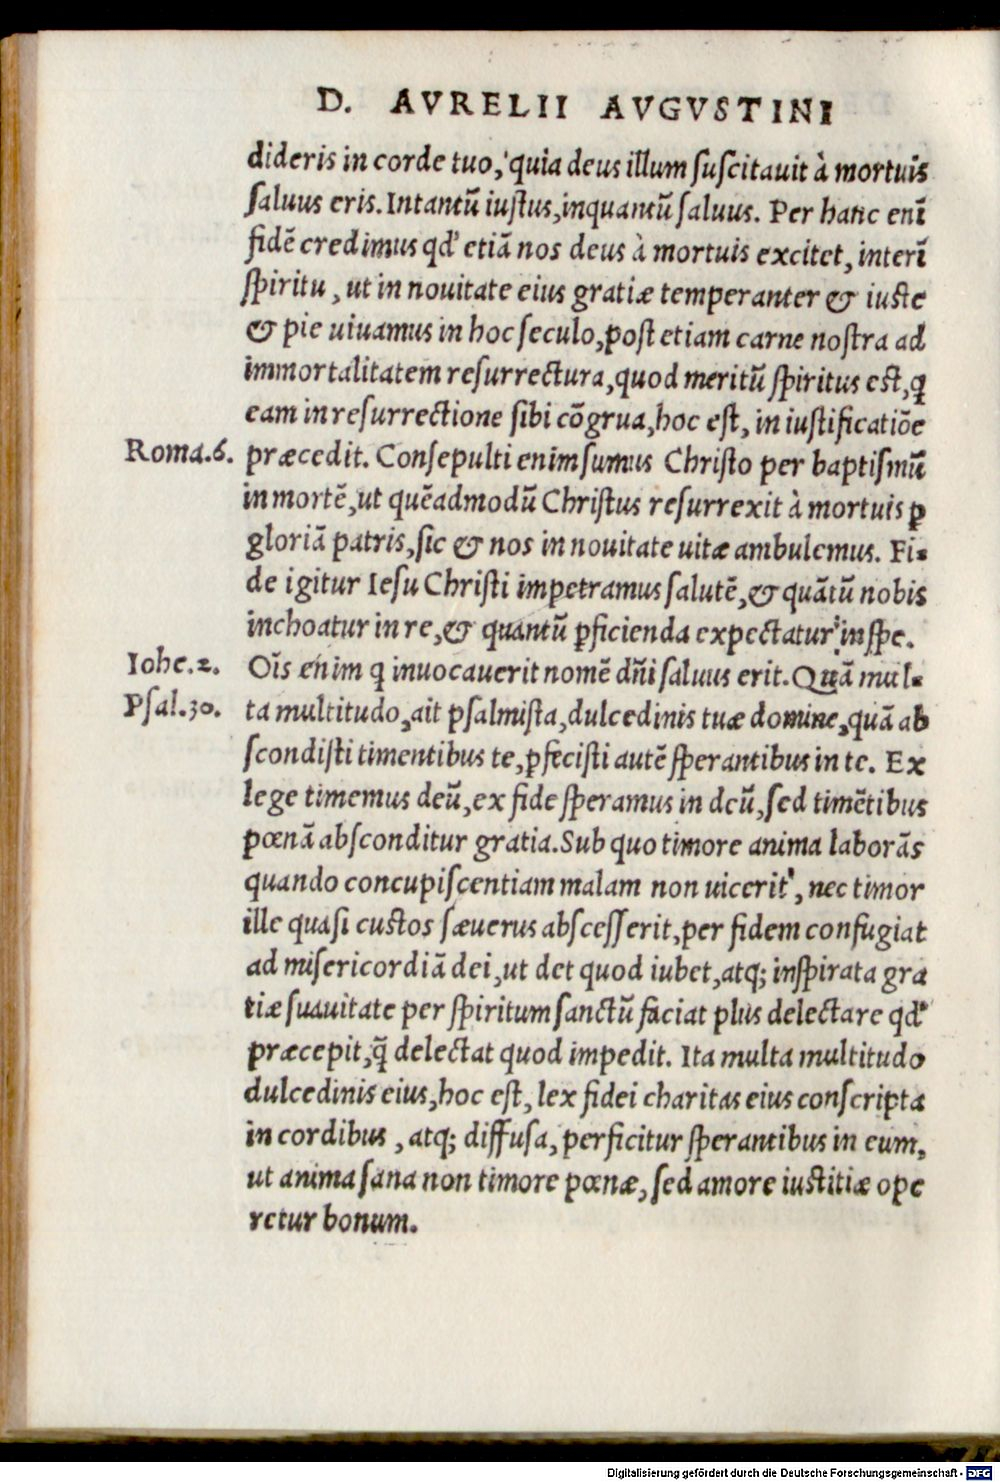 D. AVRELII AVGVSTINI
dideris in corde tuo, quia deus illum suscitauit à mortuis
saluus eris. Intantū iustus, inquantū saluus. Per hanc enī
fidē credimus qd' etiā nos deus à mortuis excitet, interī
spiritu, ut in nouitate eius gratiæ temperanter & iuste
& pie uiuamus in hoc seculo, post etiam carne nostra ad
immortalitatem resurrectura, quod meritū spiritus est, q
eam in resurrectione sibi cōgrua, hoc est, in iustificatiōe
Roma.6. præcedit. Consepulti enim sumus Christo per baptismū
in mortē, ut quēadmodū Christus resurrexit à mortuis ꝑ
gloriā patris, sic & nos in nouitate uitæ ambulemus. Fi-
de igitur Iesu Christi impetramus salutē, & quātū nobis
inchoatur in re, & quantū ꝑficienda expectatur in spe.
Iohe.2. Oīs enim q inuocauerit nomē dn̄i saluus erit. Quā mul-
Psal.30. ta multitudo, ait psalmista, dulcedinis tuæ domine, quā ab
scondisti timentibus te, ꝑfecisti autē sperantibus in te. Ex
lege timemus deū, ex fide speramus in deū, sed timētibus
pœnā absconditur gratia. Sub quo timore anima laborās
quando concupiscentiam malam non uicerit, nec timor
ille quasi custos sæuerus abscesserit, per fidem confugiat
ad misericordiā dei, ut det quod iubet, atq; inspirata gra
tiæ suauitate per spiritum sanctū faciat plus delectare qd'
præcepit, q̄ delectat quod impedit. Ita multa multitudo
dulcedinis eius, hoc est, lex fidei charitas eius conscripta
in cordibus, atq; diffusa, perficitur sperantibus in eum,
ut anima sana non timore pœnæ, sed amore iustitiæ ope
retur bonum.
Digitalisierung gefördert durch die Deutsche Forschungsgemeinschaft - DFG